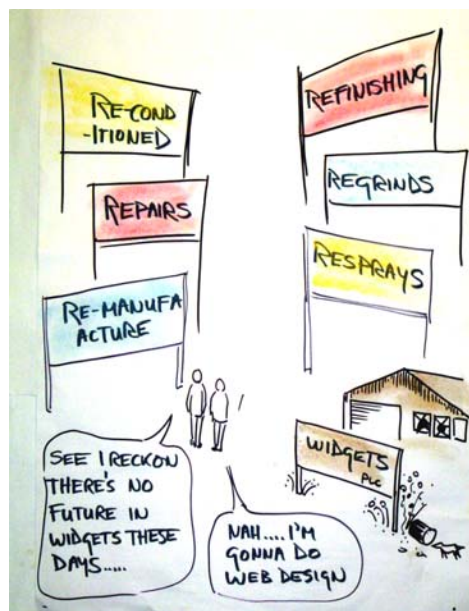 RE-COND
-ITIONED
REPAIRS
RE-MANUFA
ACTURE
REFINISHING
REGRINDS
RESPRAYS
WIDGETS
PLC
SEE I RECKON
THERE'S NO
FUTURE IN
WIDGETS THESE
DAYS.....
NAH....I'M
GONNA DO
WEB DESIGN